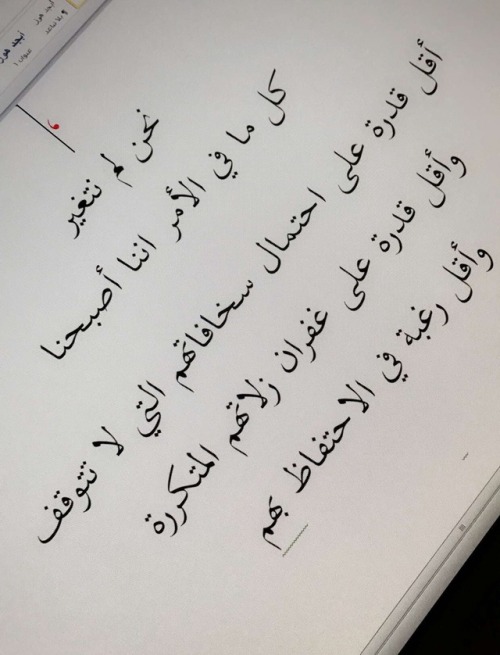 أبجد هوز
نحن لم نتغير
كل ما في الأمر اننا أصبحنا
أقل قدرة على احتمال سخافاتهم التي لا تتوقف
وأقل قدرة على غفران زلاتهم المتكررة
وأقل رغبة في الاحتفاظ بهم